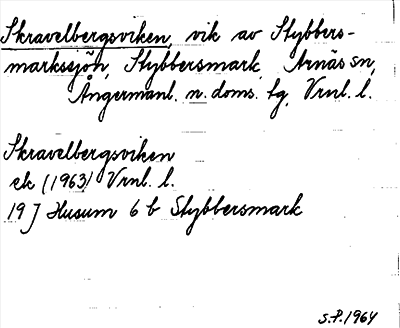 Skravelbergsviken, vik av Stybbers-
markssjön, Stybbersmark, Arnäs sn,
Ångermanl. n. doms. fg, Vrnl. l.
Skravelbergsviken
ek (1963) Vrnl. l.
19 J Husum 6 b Stybbersmark
S.P. 1964